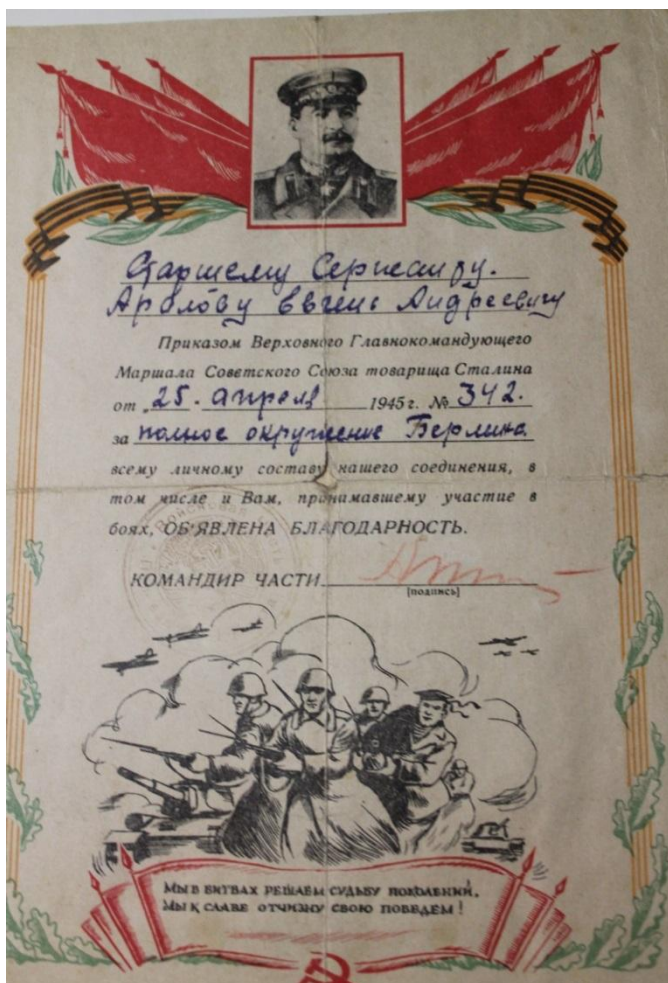 Старшему Сержанту.
Арблову Евгению Андреевичу
Приказом Верховного Главнокомандующего
Маршала Советского Союза товарища Сталина
от „25. апреля 1945 г. № 342.
за полное окружение Берлина
всему личному составу нашего соединения, в
том числе и Вам, принимавшему участие в
боях, ОБ'ЯВЛЕНА БЛАГОДАРНОСТЬ.
КОМАНДИР ЧАСТИ
[подпись]
МЫ В БИТВАХ РЕШАЕМ СУДЬБУ ПОКОЛЕНИЙ,
МЫ К СЛАВЕ ОТЧИЗНУ СВОЮ ПОВЕДЕМ!